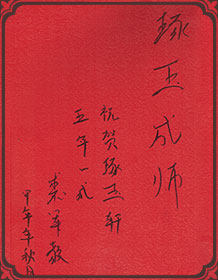 琢玉成师
祝贺琢玉轩
五年一成
甲午年秋月